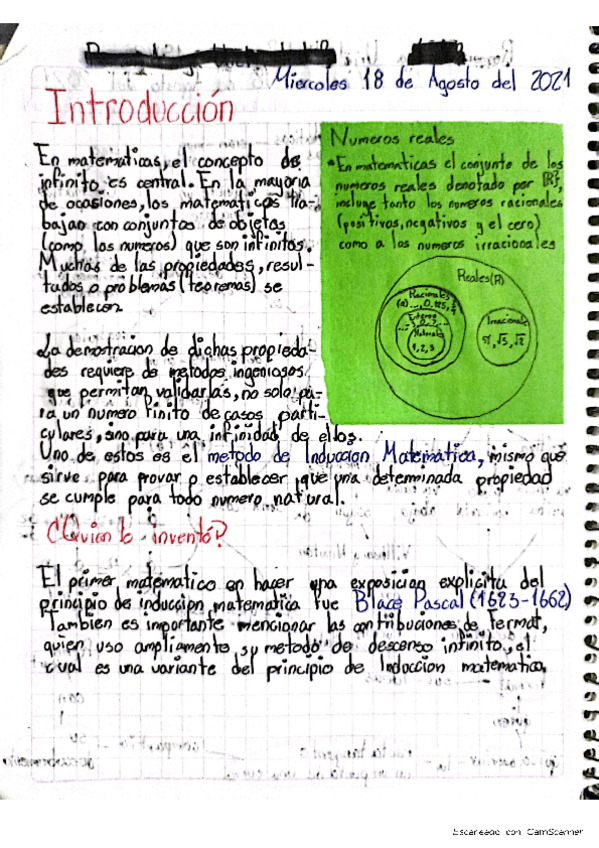 Miercoles 18 de Agosto del 2021
Introducción
En matematicas, el concepto de
infinito es central. En la mayoria
de ocasiones, los matematicos tra-
bajan con conjuntos de objetos
(como los numeros) que son infinitos.
Muchas de las propiedades, resul-
tados o problemas (teoremas) se
establecen
La demostracion de dichas propieda-
des requiere de metodos ingeniosos
que permitan validarlas, no solo pa-
ra un numero finito de casos parti-
culares, sino para una infinidad de ellos.
Uno de estos es el metodo de Induccion Matematica, mismo que
sirve para provar o establecer que una determinada propiedad
se cumple para todo numero natural.
Numeros reales
*En matematicas el conjunto de los
numeros reales denotado por R,
incluye tanto los numeros racionales
(positivos, negativos y el cero)
como a los numeros irracionales
Reales (R)
Racionales
Enteros
Naturales
1, 2, 3
Irracional
√5, √2
¿Quien lo inventó?
El primer matematico en hacer una exposicion explicita del
principio de induccion matematica fue Blace Pascal (1623-1662)
Tambien es importante mencionar las contribuciones de Fermat,
quien uso ampliamente su metodo de descenso infinito, el
cual es una variante del principio de Induccion matematica.
Escaneado con CamScanner